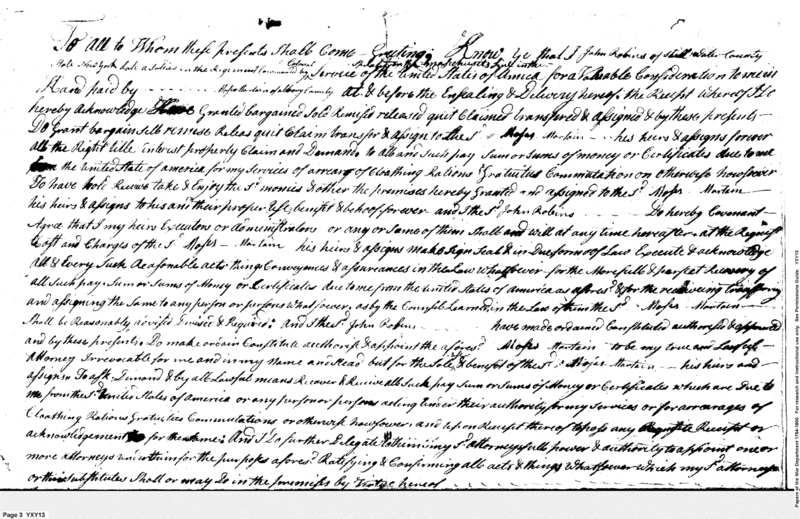 To All to Whom these presents Shall Come Greeting: Know ye that I John Robins of County
State New York late a Soldier in the Regiment Commanded by Colonel
Service of the United States of America for a Valuable Consideration to me in
Hand paid by Moses Martain of Albany County at & before the Ensealing & Delivery hereof the Receipt Whereof I Do
hereby Acknowledge Have Granted bargained Sold Remised released quit Claimed transfered & assigned & by these presents
Do Grant bargain sell remise Releas quit Claim transfer & assign to the Sd Moses Martain his heirs & assigns forever
all the Right title Interest property Claim and Demand to all and Such pay Sum or Sums of money or Certificates due to me
from the United State of america for my Services of arrears of Cloathing Rations Gratuities Commutation or otherwise howsoever
To have hold Receive take & Enjoy the Sd monies & other the premises hereby Granted and assigned to the Sd Moses Martain
his heirs & assigns to his and their proper use, benefit & behoof forever and I the Sd John Robins Do hereby Covenant
Agree that I my heirs Executors or administrators or any or Some of them Shall and will at any time hereafter at the Request
Cost and Charges of the Sd Moses Martain his heirs & assigns make Sign Seal & in Due form of Law Execute & acknowledge
All & Every Such Reasonable acts things Conveyances & assurances in the Law Whatsoever for the More full & perfect Recovery of
all Such pay Sum or Sums of Money or Certificates due to me from the United States of america as aforesd & for the
and assigning the Same to any person or persons Whatsoever, as by the Counsel Learned in the Law of them the Sd Moses Martain
Shall be Reasonably advised Devised & Required: And I the Sd John Robins have made ordained Constituted authorised & appointed
and by these presents Do make ordain Constitute authorise & appoint the aforesd Moses Martain to be my true and Lawful
Attorney Irrevocable for me and in my Name and Stead but for the Sole use & benefit of the Sd Moses Martain his heirs and
assigns To ask Demand & by all Lawful means Recover & Receive all Such pay Sum or Sums of Money or Certificates which are Due to
me from the Sd United States of America or any person or persons acting Under their authority for my Services or for arrearages of
Cloathing Rations Gratuities Commutations or otherwise howsoever and upon Receipt thereof to pass any Receipt or
acknowledgement for the same: And I Do further Delegate to him my Sd attorney full power & authority to appoint one or
more attorneys under him for the purposes aforesd Ratifying & Confirming all acts & things Whatsoever which my Sd attorney
or their substitutes Shall or may Do in the premises by Virtue hereof
Page 3 YXY13
Papers of the War Department 1784-1800. For research and instructional use only. See Permissions Guide. YXY13